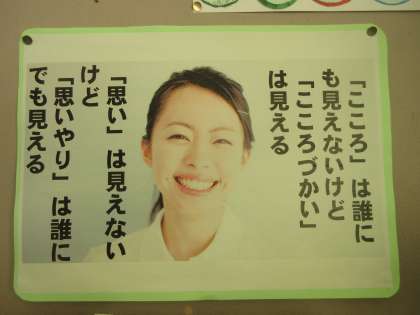 「こころ」は誰に
も見えないけど
「こころづかい」
は見える
「思い」は見えない
けど
「思いやり」は誰に
でも見える